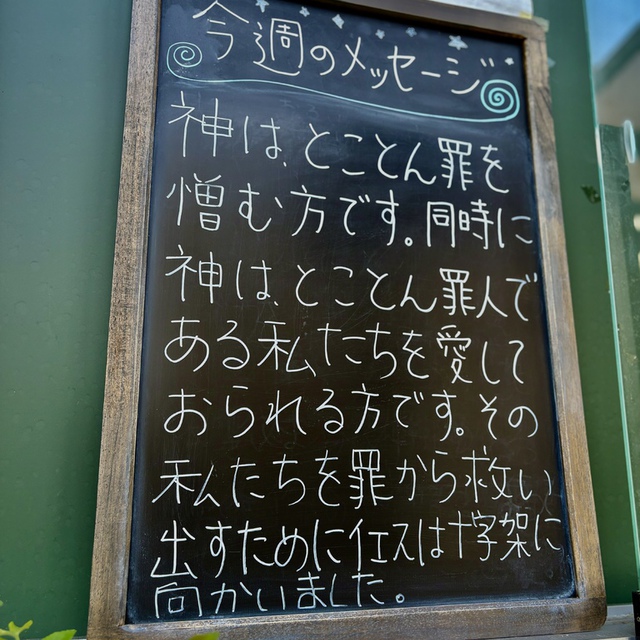 今週のメッセージ
神は、とことん罪を
憎む方です。同時に
神は、とことん罪人で
ある私たちを愛して
おられる方です。その
私たちを罪から救い
出すためにイエスは十字架に
向かいました。